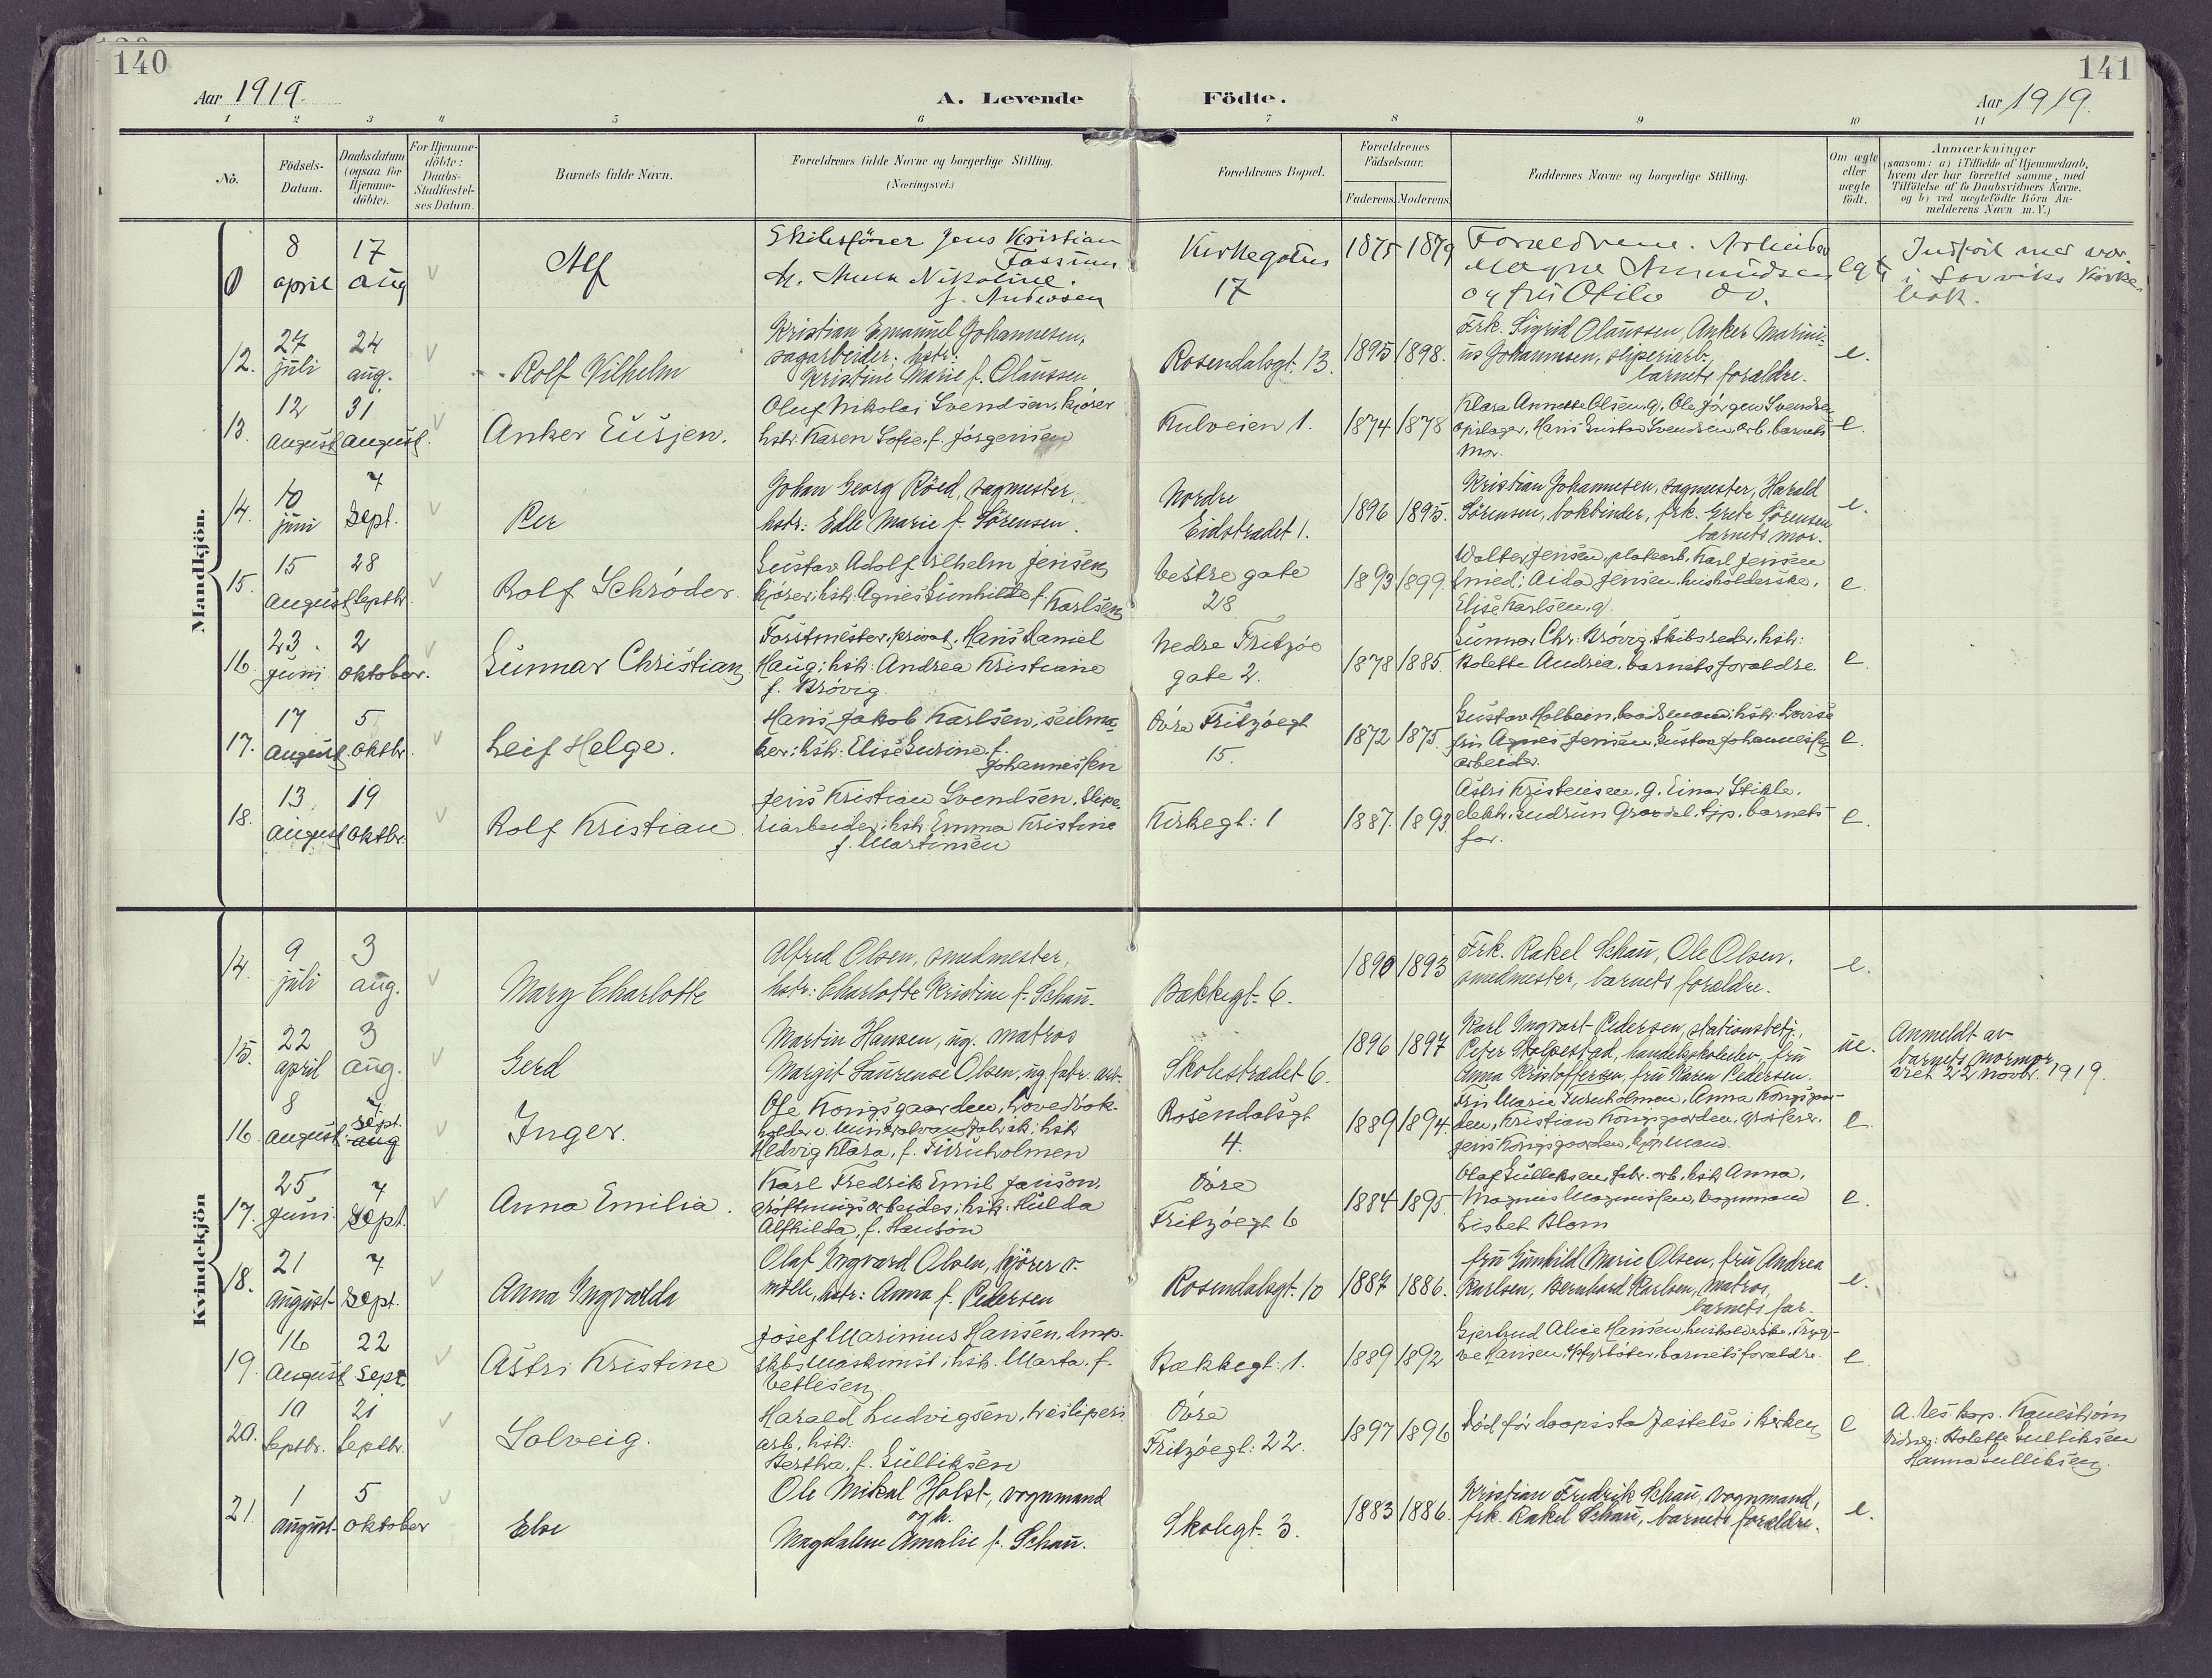 140
141
Aar 1919.
A. Levende Födte.
Aar 1919.
1 2 3 4 5 6 7 8 9 10 11
No.
Födsels-
Datum.
Daabsdatum
(ogsaa for
Hjemme-
döbte).
For Hjemme-
döbte:
Daabs-
Stadfæstel-
ses Datum.
Barnets fulde Navn.
Forældrenes fulde Navne og borgerlige Stilling.
(Næringsvei.)
Forældrenes Bopæl.
Forældrenes
Födselsaar.
Faderens. Moderens.
Faddernes Navne og borgerlige Stilling.
Om ægte
eller
uægte
födt.
Anmærkninger
(saasom: a) i Tilfælde af Hjemmedaab,
hvem der har forrettet samme, med
Tilföielse af to Daabsvidners Navne.
og b) ved uægtefödte Börn An-
melderens Navn m. V.)
Mandkjön.
0
8
april
17
aug
Alf
Skibsfører Jens Kristian
Fossum
Nikoline
f. Andersen
Kirkegaten
17
1875 1879
Forældrene. Arbeider
Magne Amundsen
og fru Otilie do.
egte
Indført med no.
i Kirke-
bok.
12.
27
juli
24
aug.
Rolf Vilhelm
Kristian Emanuel Johannesen,
sagarbeider. hstr:
Kristine Marie f. Olaussen
Rosendalsgt. 13.
1895 1898.
Frk. Sigrid Olaussen, Anker Marini-
us Johannsen, sliperiarb.,
barnets forældre.
e.
13.
12
august
31
august.
Anker Eusjen.
Oluf Nikolai Svendsen, kjører
hstr. Karen Sofie, f. Jørgensen
Kulveien 1.
1874 1878
Klara Annette Olsen, g. Ole Jørgen Svendsen
opslager, Hans Gustav Svendsen, arb. barnets
mor.
e.
14.
10
juni
7
Sept.
Per
Johan Georg Röed, sagmester,
hstr: Edle Marie f. Sörensen.
Nordre
Eidstrædet 1.
1896 1895.
Kristian Johannesen, sagmester, Harald
Sörensen, bokbinder, frk. Grete Sörensen
barnets mor.
e.
15.
15
August
28
septbr.
Rolf Schröder.
Gustav Adolf Vilhelm Jensen
kjører; hstr: Agnes Gunhilde f. Karlsen
Vestre gate
28
1893 1899.
Walter Jensen, platearb. Karl Jensen
smed; Aida Jensen, husholderske.
Elise Karlsen, g.
e.
16.
23.
Juni
2
oktober.
Gunnar Christian
Forstmester, privat, Hans Daniel
Haug; hstr: Andrea Kristiane
f. Brövig.
Nedre Fritzöe
gate 2.
1878 1885
Gunnar Chr: Brövig, Skibsreder, hstr:
Bolette Andrea, barnets forældre
e.
17.
17
August
5
oktbr.
Leif Helge.
Hans Jakob Karlsen, seilma-
ker; hstr: Elise Gurine, f.
Johannessen
Övre Fritzöegt
15.
1872 1875.
Gustav Holbein, baadsmand; hstr: Lovise
fru Agnes Jensen, Gustav Johannessen
arbeider.
e.
18.
13.
August
19
oktbr.
Rolf Kristian
Jens Kristian Svendsen, slipe-
riarbeider; hstr. Emma Kristine
f. Martinsen
Kirkegt: 1
1887. 1893.
Astri Kristensen, g. Einar Stikle,
elektr. Gudrun Gravdal, tjp. barnets
far.
e.
Kvindekjön
14.
9
juli
3
aug.
Mary Charlotte
Alfred Olsen, smedmester,
hstr: Charlotte Kristine f. Schau.
Bækkegt. 6.
1890 1893
Frk. Rakel Schau, Ole Olsen,
smedmester, barnets forældre.
e.
15.
22
april
3
aug.
Gerd
Martin Hansen, ug. matros
Margit Laurense Olsen, ug. fabr. arb.
Skolestrædet 6.
1896 1897
Karl Ingvart Pedersen, stationsbetj.,
Peter Stolpestad, handelsskoleelev, fru
Anna Kristoffersen, fru Karen Pedersen.
ue.
Anmeldt av
barnets mormor
viet 22 novbr. 1919.
16.
8
August
7
Sept.
aug
Inger.
Ole Kongsgaarden, hovedbok-
holder v. Mineralvandfabrik; hstr
Hedvig Klara, f. Furuholmen
Rosendalsgt
4.
1889 1894.
Fru Marie Furuholmen, Anna Kongsgaar-
den, Kristian Kongsgaarden, grosserer,
Jens Kongsgaarden, kjøpmand.
e.
17.
25
Juni
7
Sept.
Anna Emilia.
Karl Fredrik Emil Janson,
grøftningsarbeider; hstr: Hulda
Alfhilda, f. Hanson
Övre
Fritzöegt 6
1884 1895.
Olaf Gulliksen, fabr. arb. hstr Anna,
Magnus Magnussen, vognmand
Lisbet Blom
e.
18.
21
August
7
Sept.
Anna Ingvarda
Olaf Ingvard Olsen, kjörer v.
mölle, hstr: Anna f. Pedersen
Rosendalsgt. 10
1887 1886.
fru Gunhild Marie Olsen, fru Andrea
Karlsen, Bernhard Karlsen, matros,
barnets far.
e.
19.
16
August
22
Sept.
Astri Kristine
Josef Marinius Hansen, dmp.
skbs Maskinist; hstr. Marta, f.
Vetlesen
Bækkegt: 1.
1889 1892
Gjertrud Alice Hansen, husholderske, Tryg-
ve Hansen, fyrböter, barnets forældre.
e
20.
10
Septbr.
21
Septbr.
Solveig.
Harald Ludvigsen, træsliperi
arb., hstr:
Bertha, f. Gulliksen
Övre
Fritzöegt: 22.
1897 1896
Död før i kirken
e
A. res. kap.
Bolette Gulliksen
Hanna Gulliksen.
21.
1
august
5
oktober
Else
Ole Mikal Holst, vognmand
og h.
Magdalene Amalie f. Schau.
Skolegt. 3.
1883 1886.
Kristian Fredrik Schau, vognmand,
frk. Rakel Schau, barnets forældre.
e.